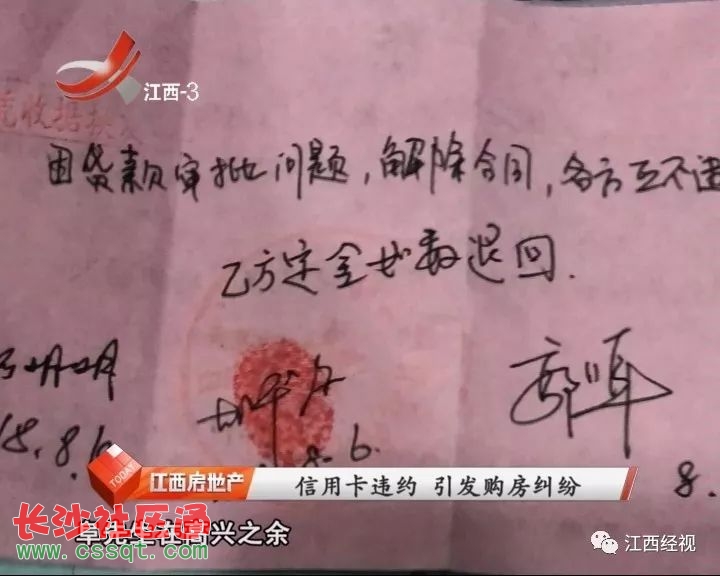 江西-3
收据
因贷款审批问题，解除合同，各方互不违
乙方定金如数退回.
18.8.6
8.6.
8.
江西房地产
TODAY
信用卡违约 引发购房纠纷
长沙社区通
www.cssqt.com
在高兴之余
江西经视